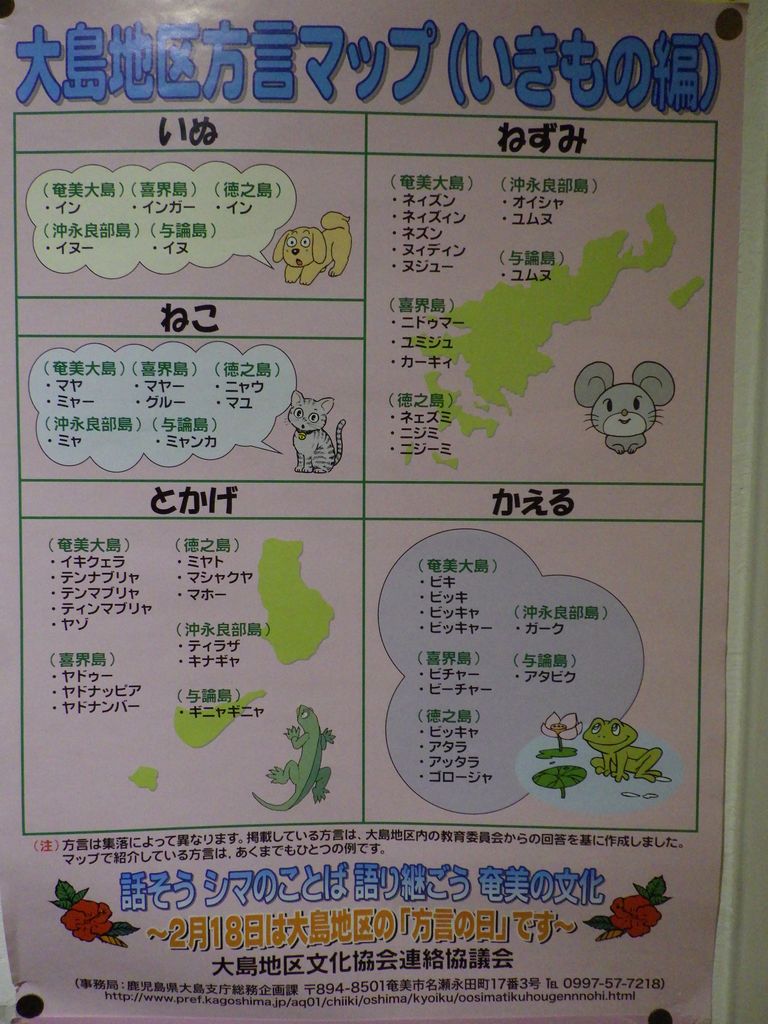 大島地区方言マップ(いきもの編)
いぬ
(奄美大島)(喜界島)(徳之島)
・イン ・インガー ・イン
(沖永良部島)(与論島)
・イヌー ・イヌ
ねこ
(奄美大島)(喜界島)(徳之島)
・マヤ ・マヤー ・ニャウ
・ミャー ・グルー ・マユ
(沖永良部島)(与論島)
・ミャ ・ミャンカ
ねずみ
(奄美大島)
・ネィズン
・ネィズィン
・ネズン
・ヌィディン
・ヌジュー
(喜界島)
・ニドゥマー
・ユミジュ
・カーキィ
(徳之島)
・ネェズミ
・ニジミ
・ニジーミ
(沖永良部島)
・オイシャ
・ユムヌ
(与論島)
・ユムヌ
とかげ
(奄美大島)
・イキクェラ
・テンナブリャ
・テンマブリャ
・ティンマブリャ
・ヤゾ
(喜界島)
・ヤドゥー
・ヤドナッビア
・ヤドナンバー
(徳之島)
・ミヤト
・マシャクヤ
・マホー
(沖永良部島)
・ティラザ
・キナギャ
(与論島)
・ギニャギニャ
かえる
(奄美大島)
・ビキ
・ビッキ
・ビッキャ
・ビッキャー
(喜界島)
・ビチャー
・ビーチャー
(徳之島)
・ビッキャ
・アタラ
・アッタラ
・ゴロージャ
(沖永良部島)
・ガーク
(与論島)
・アタビク
(注)方言は集落によって異なります。掲載している方言は、大島地区内の教育委員会からの回答を基に作成しました。
マップで紹介している方言は、あくまでもひとつの例です。
話そう シマのことば 語り継ごう 奄美の文化
～2月18日は大島地区の「方言の日」です～
大島地区文化協会連絡協議会
(事務局：鹿児島県大島支庁総務企画課 〒894-8501奄美市名瀬永田町17番3号 ℡ 0997-57-7218)
http://www.pref.kagoshima.jp/aq01/chiiki/oshima/kyoiku/oosimatikuhougennnohi.html